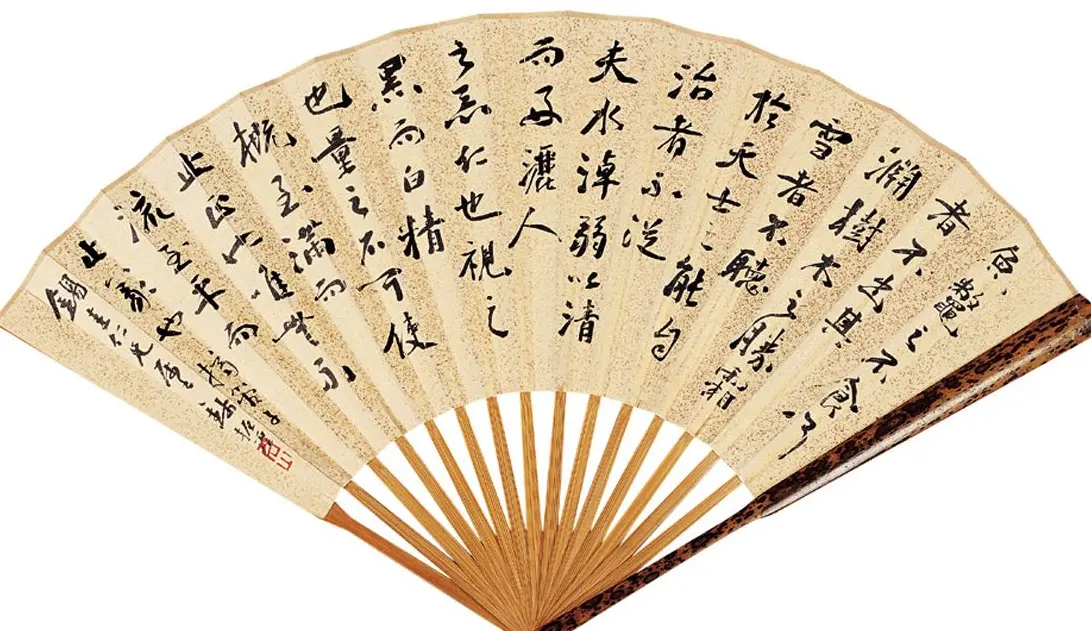 魚鼈之不食
者不出其
淵樹木之勝霜
雪者不聽
於天士之能自
治者不從
夫水淖弱以清
而好灑人
之惡仁也視之
黑而白精
也量之不可使
概至滿而
止正也唯無不
流至平而
止義也 摘管子
錫圭仁兄屬